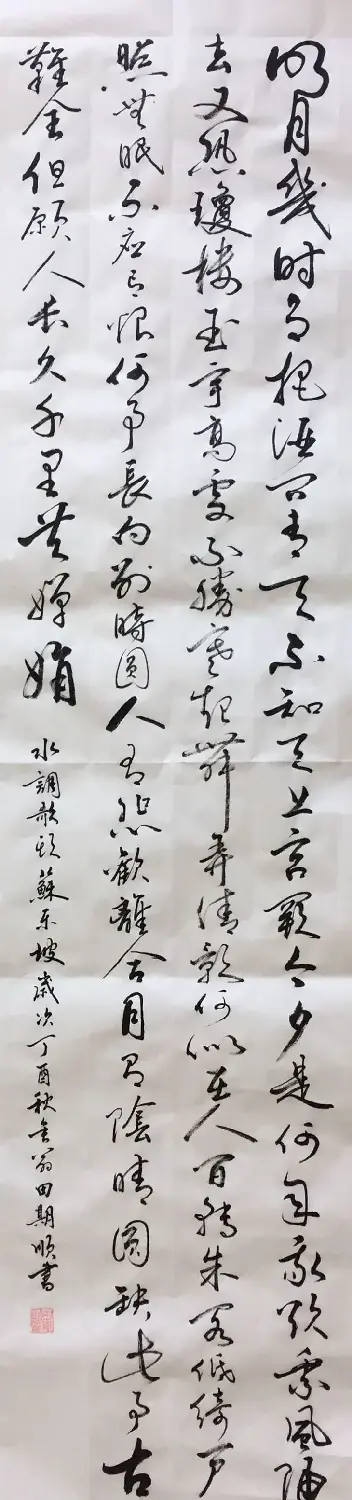 明月幾时有把酒問青天不知天上宮闕今夕是何年我欲乘風歸
去又恐瓊樓玉宇高處不勝寒起舞弄清影何似在人間轉朱閣低綺戶
照無眠不應有恨何事長向別時圓人有悲歡離合月有陰晴圓缺此事古
難全但願人長久千里共嬋娟
水調歌頭蘇東坡歲次丁酉秋翁田期順書